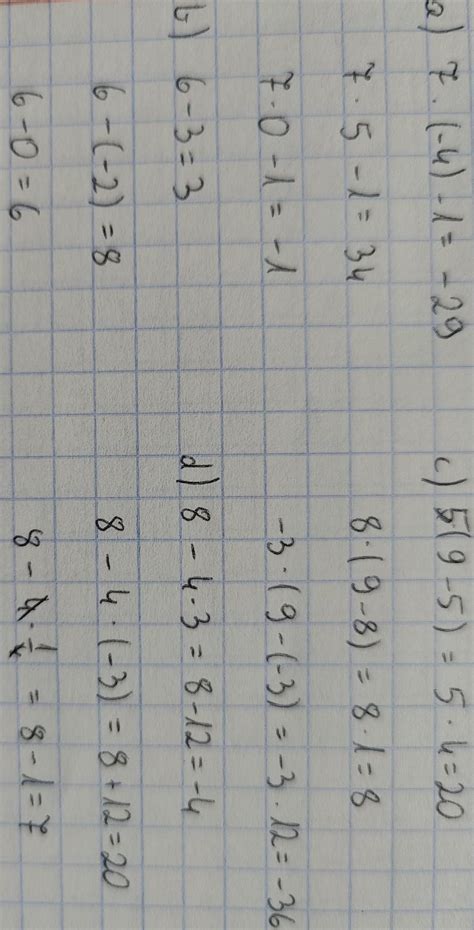 a) 7·(-4)-1 = -29
7·5-1 = 34
7·0-1 = -1
b) 6-3 = 3
6-(-2) = 8
6-0 = 6
c) 5(9-5) = 5·4 = 20
8·(9-8) = 8·1 = 8
-3·(9-(-3) = -3·12 = -36
d) 8-4·3 = 8-12 = -4
8-4·(-3) = 8+12 = 20
8-4·1/4 = 8-1 = 7